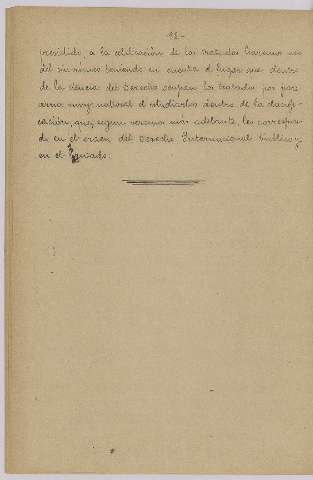 12-
presidido, a la celebración de los tratados haremos uso
del mismo teniendo en cuenta el lugar que dentro
de la ciencia del Derecho ocupan los tratados por pare
cernos muy natural el estudiarlos dentro de la clasifi-
cación, que, según veremos más adelante, les correspon-
de en el orden del Derecho Internacional Público y
en el Privado.